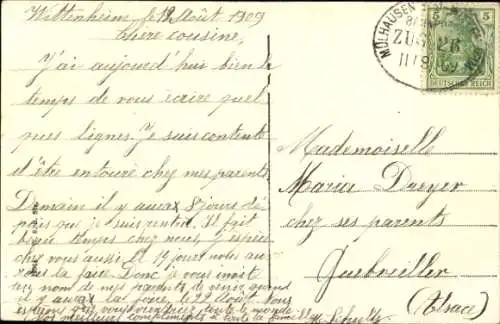 Wittenheim, le 12 Août 1909
Chère cousine,
J'ai aujourd'hui bien le
temps de vous écrire quel
ques lignes. Je suis contente
d'être entouré chez mes parents.
Demain il y aura 8 jours de
puis que je suis rentré. Il fait
beau temps chez nous, j'espère
chez vous aussi. Le 19 jour nous au
rons la foire. Donc je vous invite
au nom de mes parents de venir quand
il y aura la foire, le 22 Août. Nous
espérons que vous viendrez toute le monde.
Nos meilleurs compliments à toute la famille
MÜLHAUSEN
ZUG 26
11 8 09
5 5
DEUTSCHES REICH
Mademoiselle
Marie Dreyer
chez ses parents
Guebwiller
(Alsace)